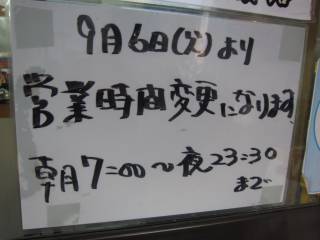 9月6日(火)より
営業時間変更になります
朝7:00〜夜23:30
まで